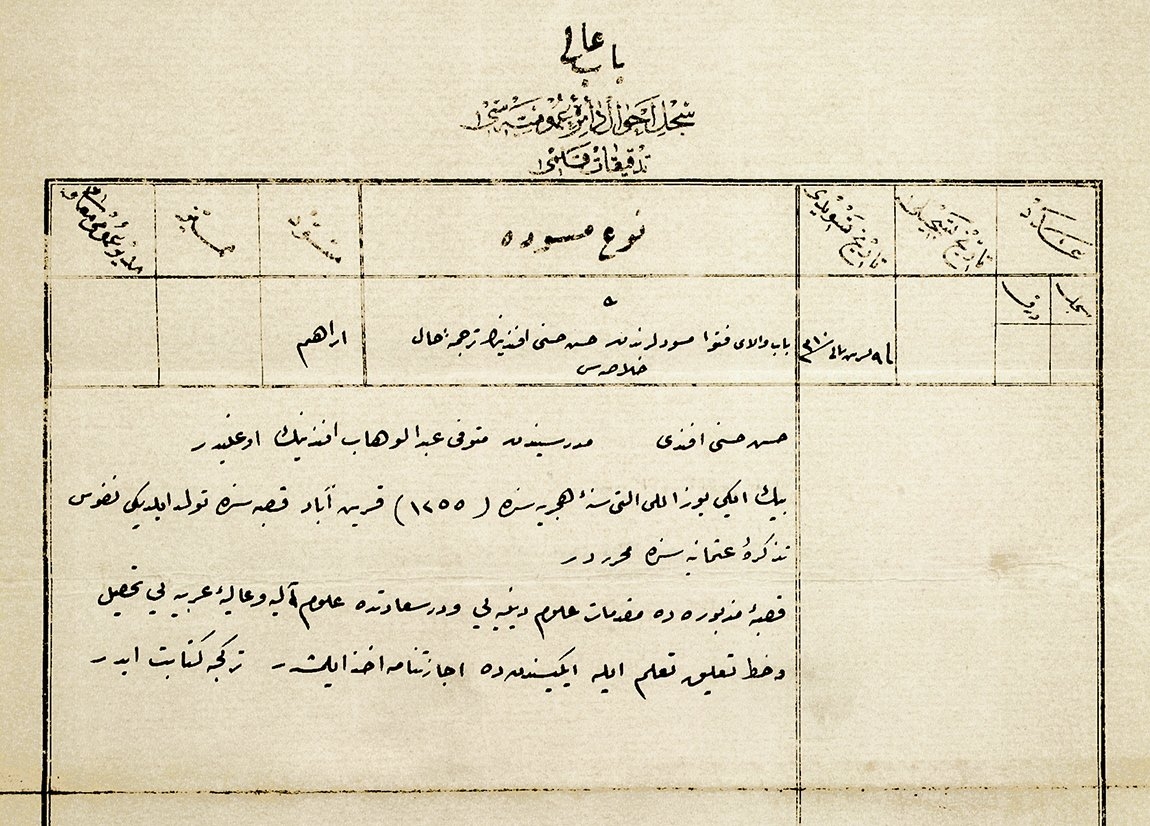 باب عالی
سجل احوال دائرهٔ عمومیه‌سی
تدقیقات قلمی
عدد
تاریخ تسجیلی
تاریخ تسویدی
نوع مسوده
مسوّد
ممیز
سجل
ورق
باب والای فتوا مسودلرندن حسن حسنی افندینك ترجمهٔ حال
خلاصه‌سی
حسن حسنی افندی مدرسیندن متوفی عبدالوهاب افندینك اوغلیدر
بیك ایکی یوز اللی التی سنهٔ هجریه‌سنده (١٢٥٥) قرین آباد قصبه‌سنده تولد ایلدیکی نفوس
تذکرهٔ عثمانیه‌سنده محرردر
قصبهٔ مذبوره‌ده مقدمات علوم دینیه‌یی ودرسعادتده علوم آلیه وعالیهٔ عربیه‌یی تحصیل
وخط تعلیق تعلم ایله ایکیسندن‌ده اجازتنامه اخذ ایلمشدر ترکجه کتابت ایدر